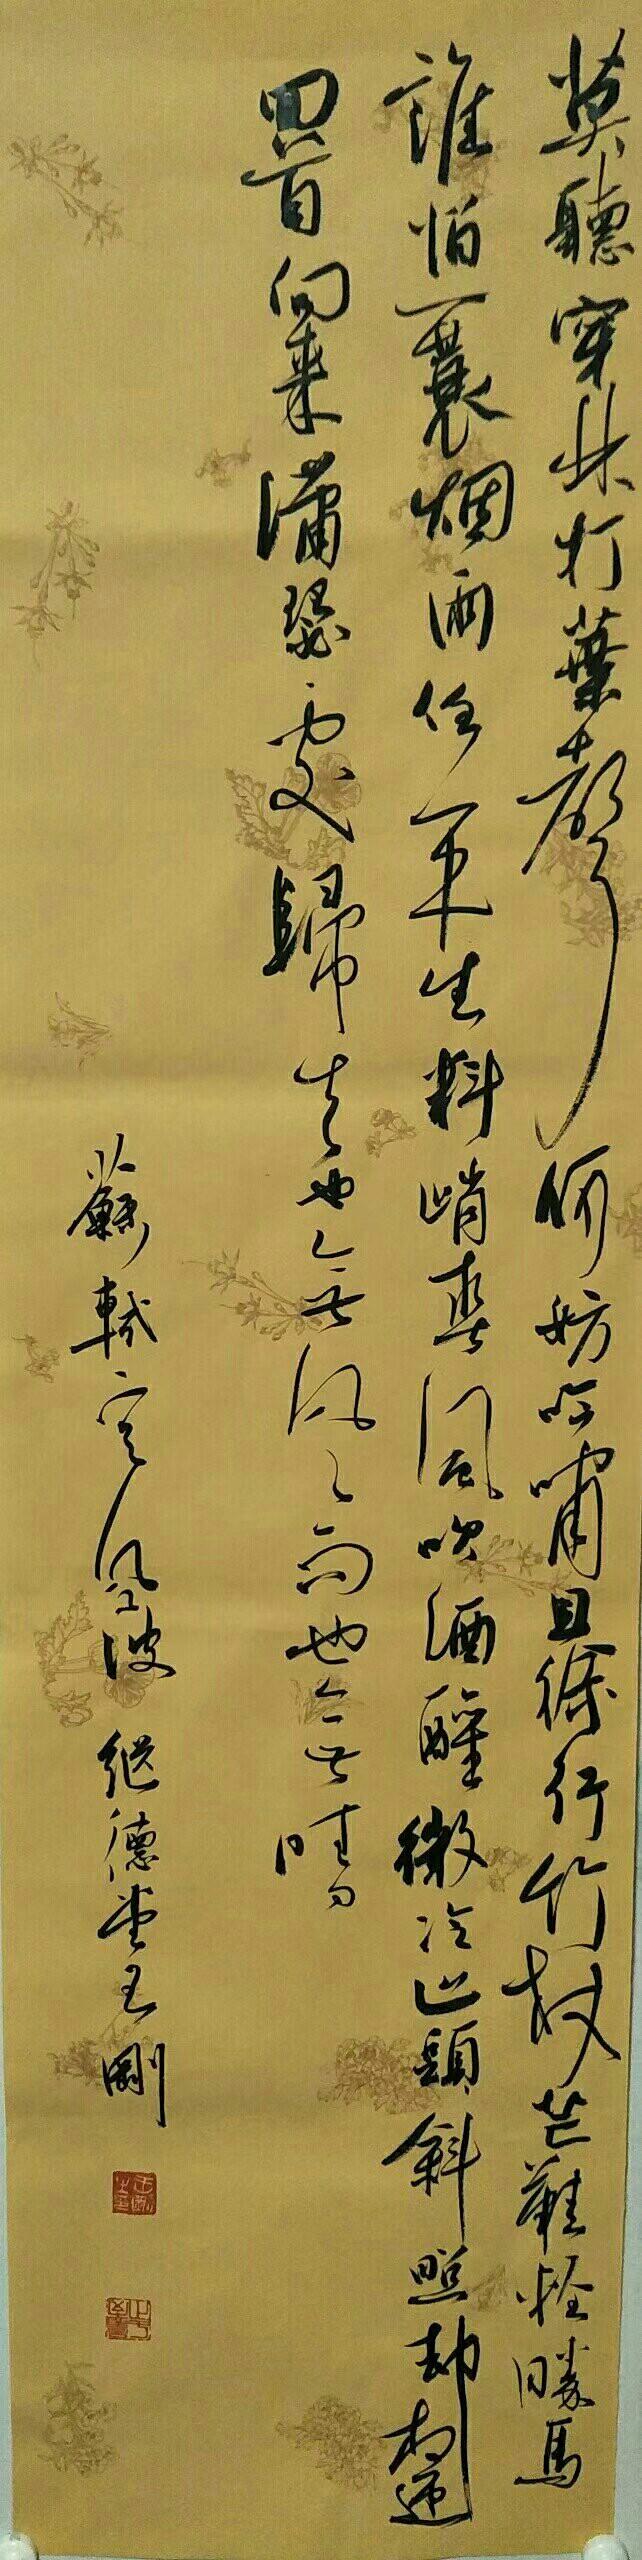 莫聽穿林打葉聲何妨吟嘯且徐行竹杖芒鞋輕勝馬
誰怕一蓑烟雨任平生料峭春風吹酒醒微冷山頭斜照却相迎
回首向來瀟瑟處歸去也無風雨也無晴
蘇軾定風波 繼德堂王剛